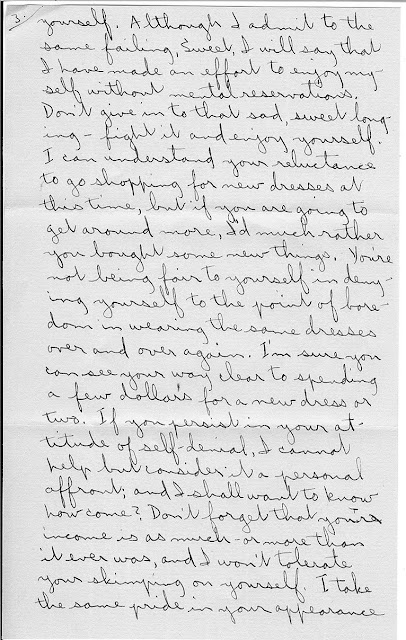 3.
yourself. Although I admit to the
same failing, Sweet, I will say that
I have made an effort to enjoy my-
self without mental reservations.
Don't give in to that sad, sweet long-
ing - fight it and enjoy yourself.
I can understand your reluctance
to go shopping for new dresses at
this time, but if you are going to
get around more, I'd much rather
you bought some new things. You're
not being fair to yourself in deny-
ing yourself to the point of bore-
dom in wearing the same dresses
over and over again. I'm sure you
can see your way clear to spending
a few dollars for a new dress or
two. If you persist in your at-
titude of self-denial, I cannot
help but consider it a personal
affront; and I shall want to know
how come? Don't forget that your
income is as much - or more than
it ever was, and I won't tolerate
your skimping on yourself. I take
the same pride in your appearance